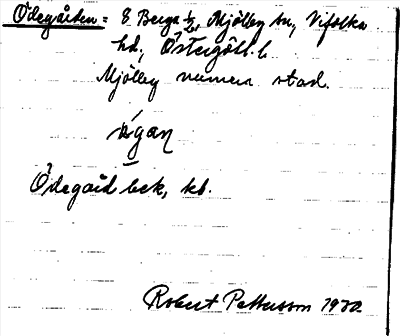 Ödegården = E Berga 1/2, Mjölby sn, Vifolka
hd, Östergötl. l.
Mjölby numera stad.
ǿgan
Ödegård bek, kb.
Robert Pettersson 1932